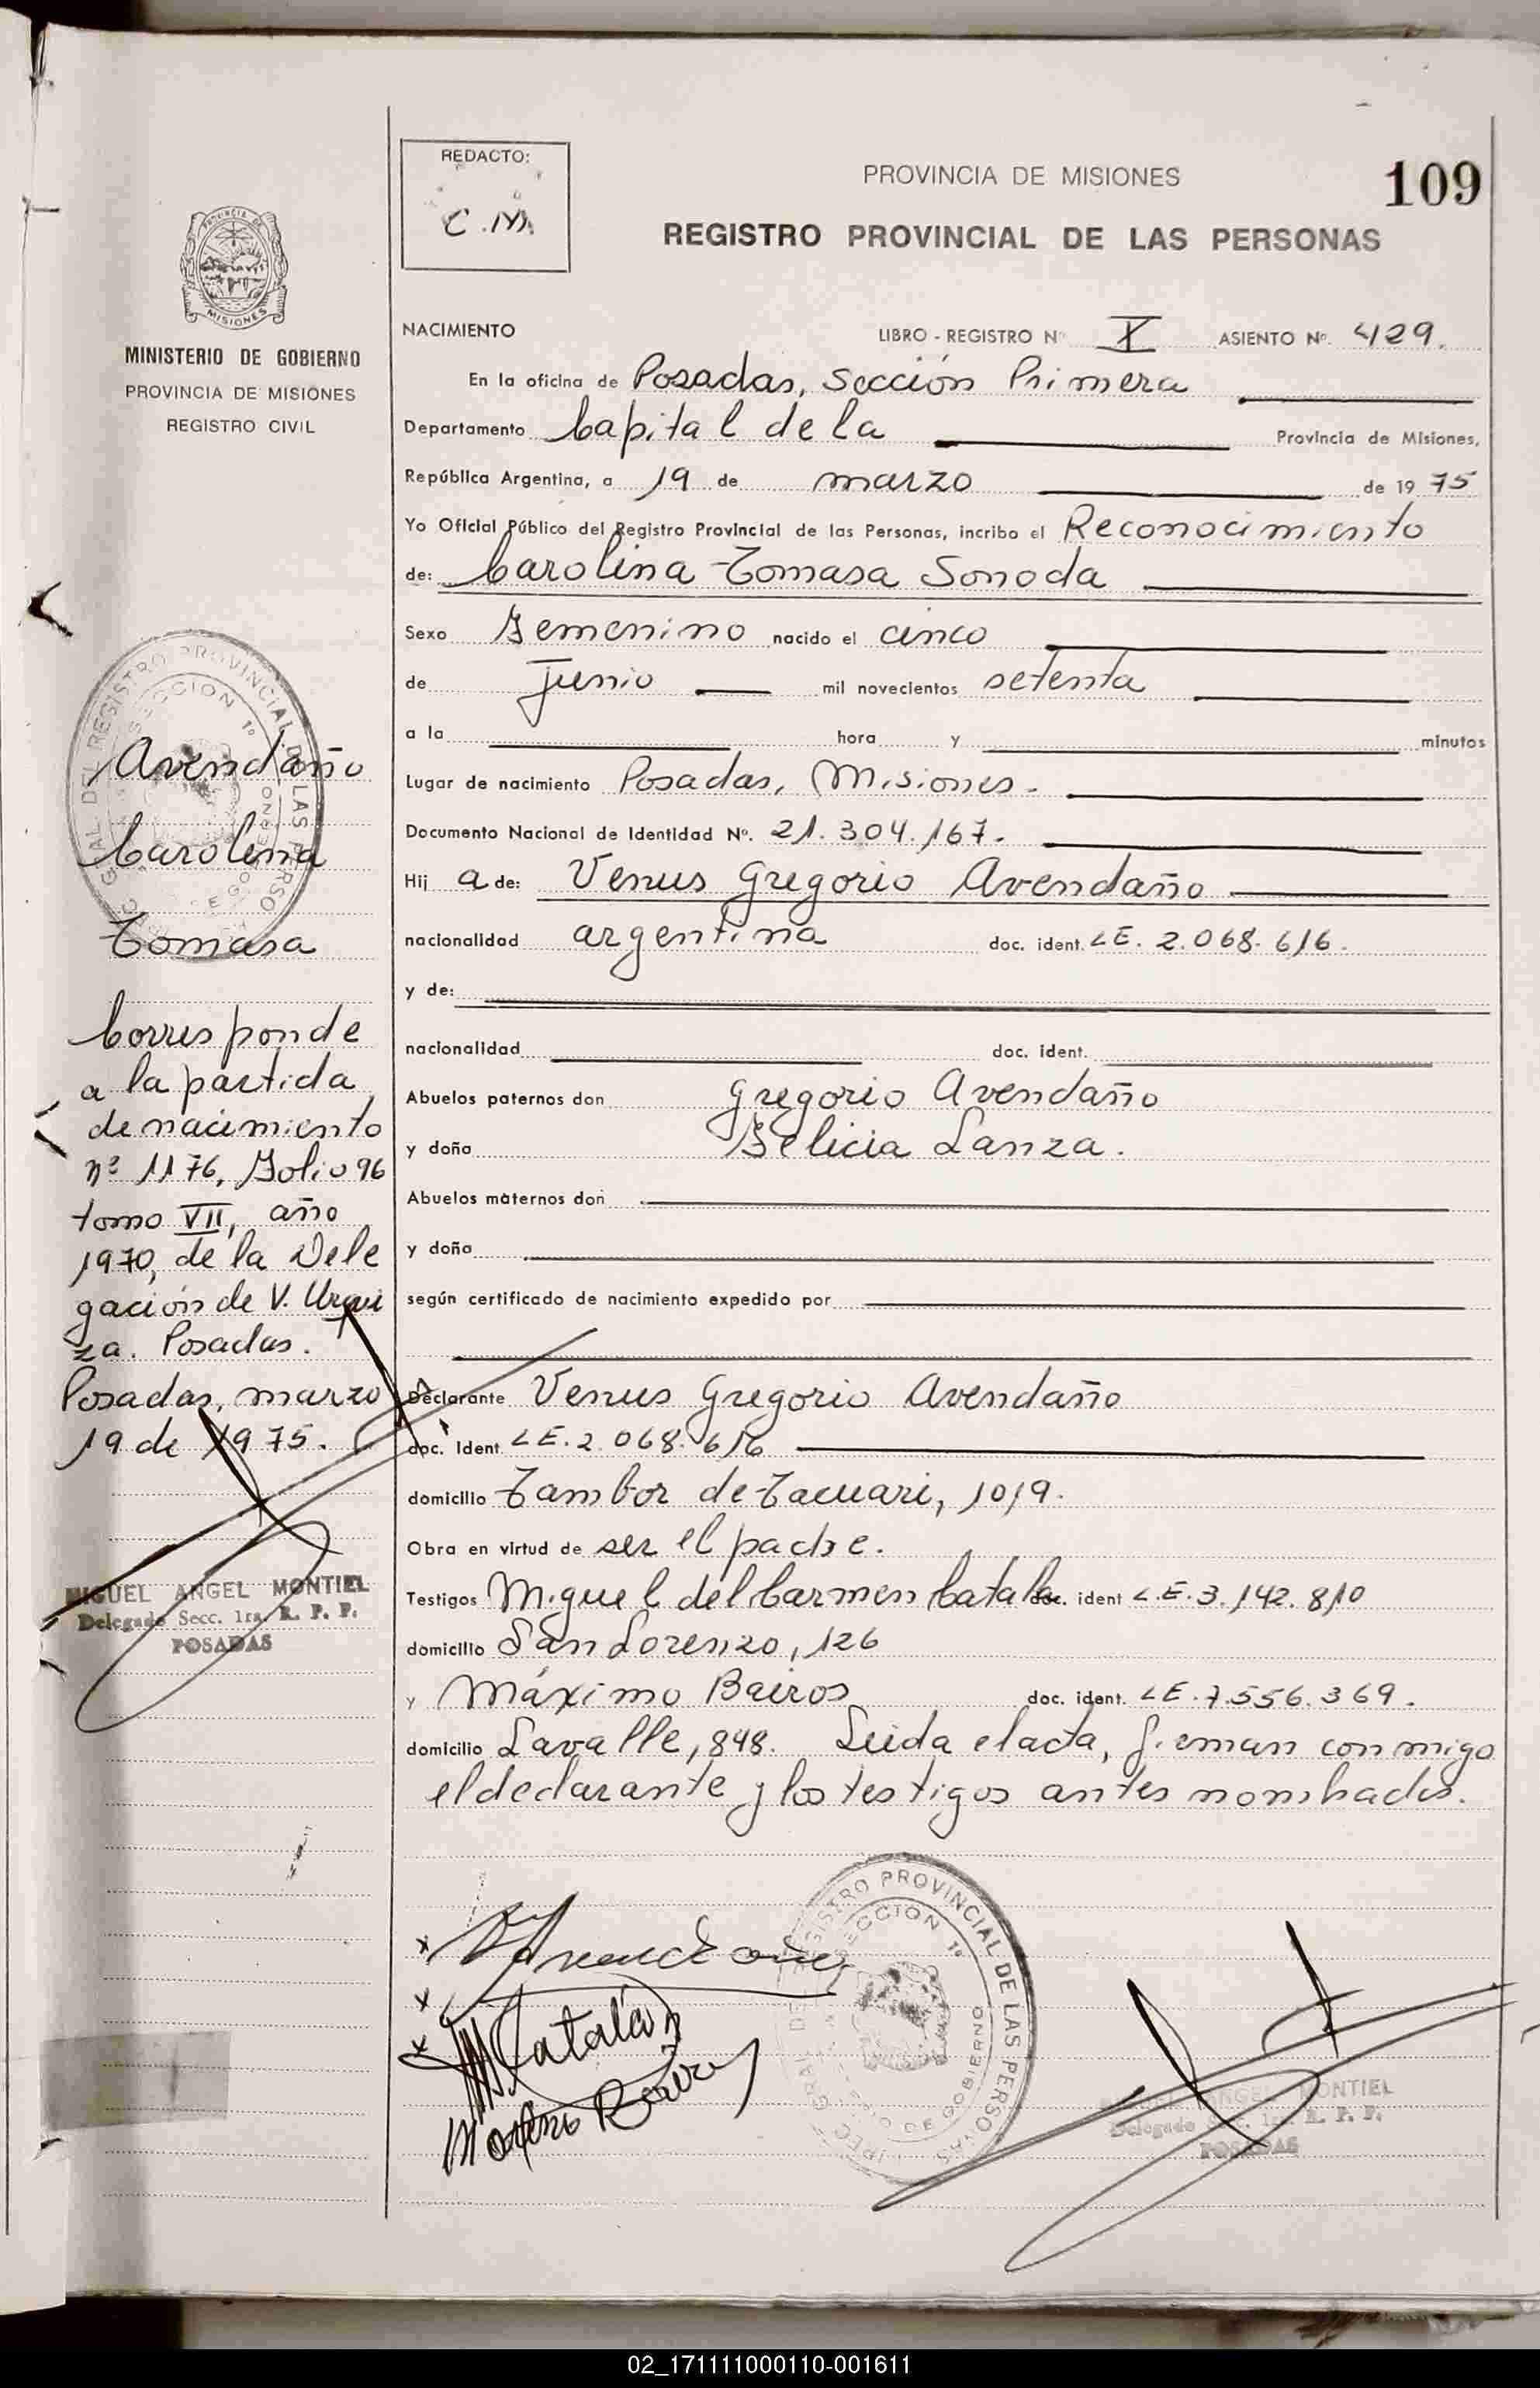 REDACTO:
C.M.
PROVINCIA DE MISIONES
109
REGISTRO PROVINCIAL DE LAS PERSONAS
MISIONES
MINISTERIO DE GOBIERNO
PROVINCIA DE MISIONES
REGISTRO CIVIL
NACIMIENTO LIBRO - REGISTRO Nº X ASIENTO Nº. 429.
En la oficina de Posadas, Sección Primera
Departamento Capital de la Provincia de Misiones,
República Argentina, a 19 de marzo de 1975
Yo Oficial Público del Registro Provincial de las Personas, incribo el Reconocimiento
de: Carolina Tomasa Sonoda
Sexo Femenino nacido el cinco
de Junio mil novecientos setenta
a la hora y minutos
Lugar de nacimiento Posadas, Misiones.
Documento Nacional de Identidad Nº. 21.304.167.
Hij a de: Venus Gregorio Avendaño
nacionalidad argentina doc. ident. LE. 2.068.616.
y de:
nacionalidad doc. ident.
Abuelos paternos don Gregorio Avendaño
y doña Felicia Lanza.
Abuelos maternos don
y doña
según certificado de nacimiento expedido por
Declarante Venus Gregorio Avendaño
doc. ident. LE. 2.068.616
domicilio Tambor de Tacuari, 1019.
Obra en virtud de ser el padre.
Testigos Miguel del Carmen Catalán doc. ident L.E. 3.142.810
domicilio San Lorenzo, 126
y Máximo Bairos doc. ident. LE. 7.556.369.
domicilio Lavalle, 848. Leida el acta, firman conmigo
el declarante y los testigos antes nombrados.
Avendaño
Carolina
Tomasa
Corresponde
a la partida
de nacimiento
nº 1176, Folio 96
tomo VII, año
1970, de la Dele
gación de V. Urqui
za. Posadas.
Posadas, marzo
19 de 1975.
MIGUEL ANGEL MONTIEL
Delegado Secc. 1ra. R. P. P.
POSADAS
REGISTRO PROVINCIAL DE LAS PERSONAS
SECCION 1º
DE GOBIERNO
Avendaño
M Catalán
Maximo Bairos
MIGUEL ANGEL MONTIEL
Delegado Secc. 1ra. R. P. P.
POSADAS
02_171111000110-001611